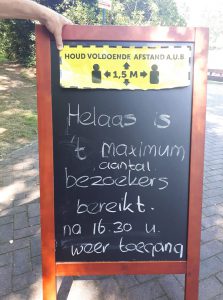 HOUD VOLDOENDE AFSTAND A.U.B.
1,5 M
Helaas is
't maximum
aantal
bezoekers
bereikt.
na 16.30 u.
weer toegang